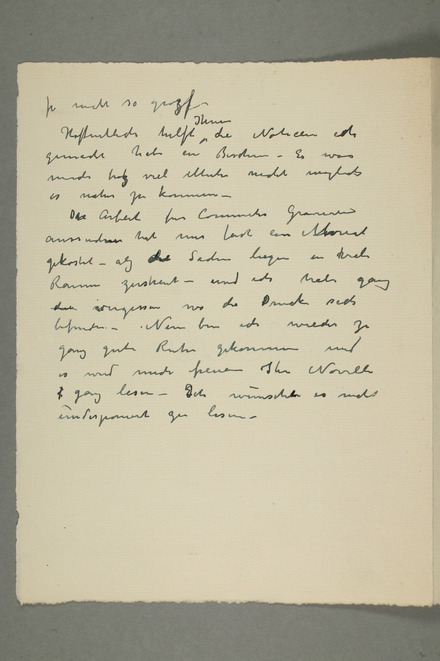 ja nicht so groß –
Hoffentlich hilft Ihnen die Notizen ich
gemacht habe ein Bisschen – Es war
viel Mühe nicht möglich
es näher zu kommen –
Die Arbeit fur Committee
hat mir fast ein Monat
gekostet – die Sachen liegen in
Raum zerstreut – und ich habe ganz
vergessen wo die Drucke sich
befinden – Nun bin ich wieder zu
ganz gute Ruhe gekommen und
es wird mich freuen Ihre Novelle
ganz lesen – Ich wünschte es nicht
zu lesen –